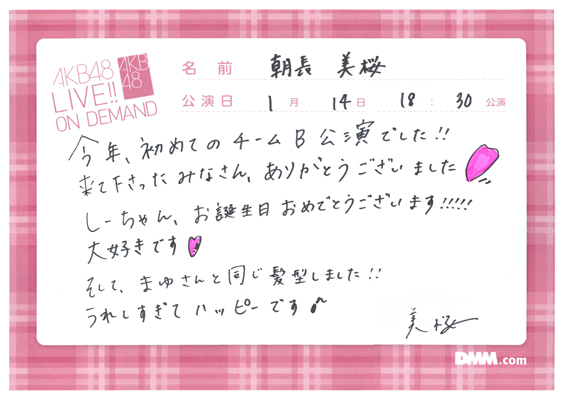 AKB48
LIVE!!
ON DEMAND
AKB
48
名前 朝長 美桜
公演日 1月 14日 18:30公演
今年、初めてのチームB公演でした!!
来て下さったみなさん、ありがとうございました
しーちゃん、お誕生日おめでとうございます!!!!!
大好きです
そして、まゆさんと同じ髪型しました!!
うれしすぎてハッピーです♪
美桜
DMM.com